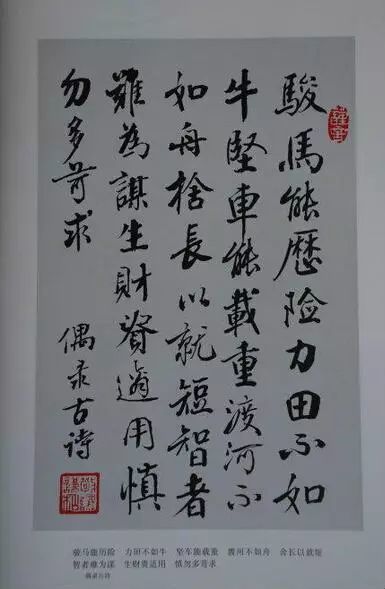 駿馬能歷险力田不如
牛堅車能載重渡河不
如舟捨長以就短智者
難為謀生財貴適用慎
勿多苛求
偶录古詩
骏马能历险 力田不如牛 坚车能载重 渡河不如舟 舍长以就短
智者难为谋 生财贵适用 慎勿多苛求
偶录古诗